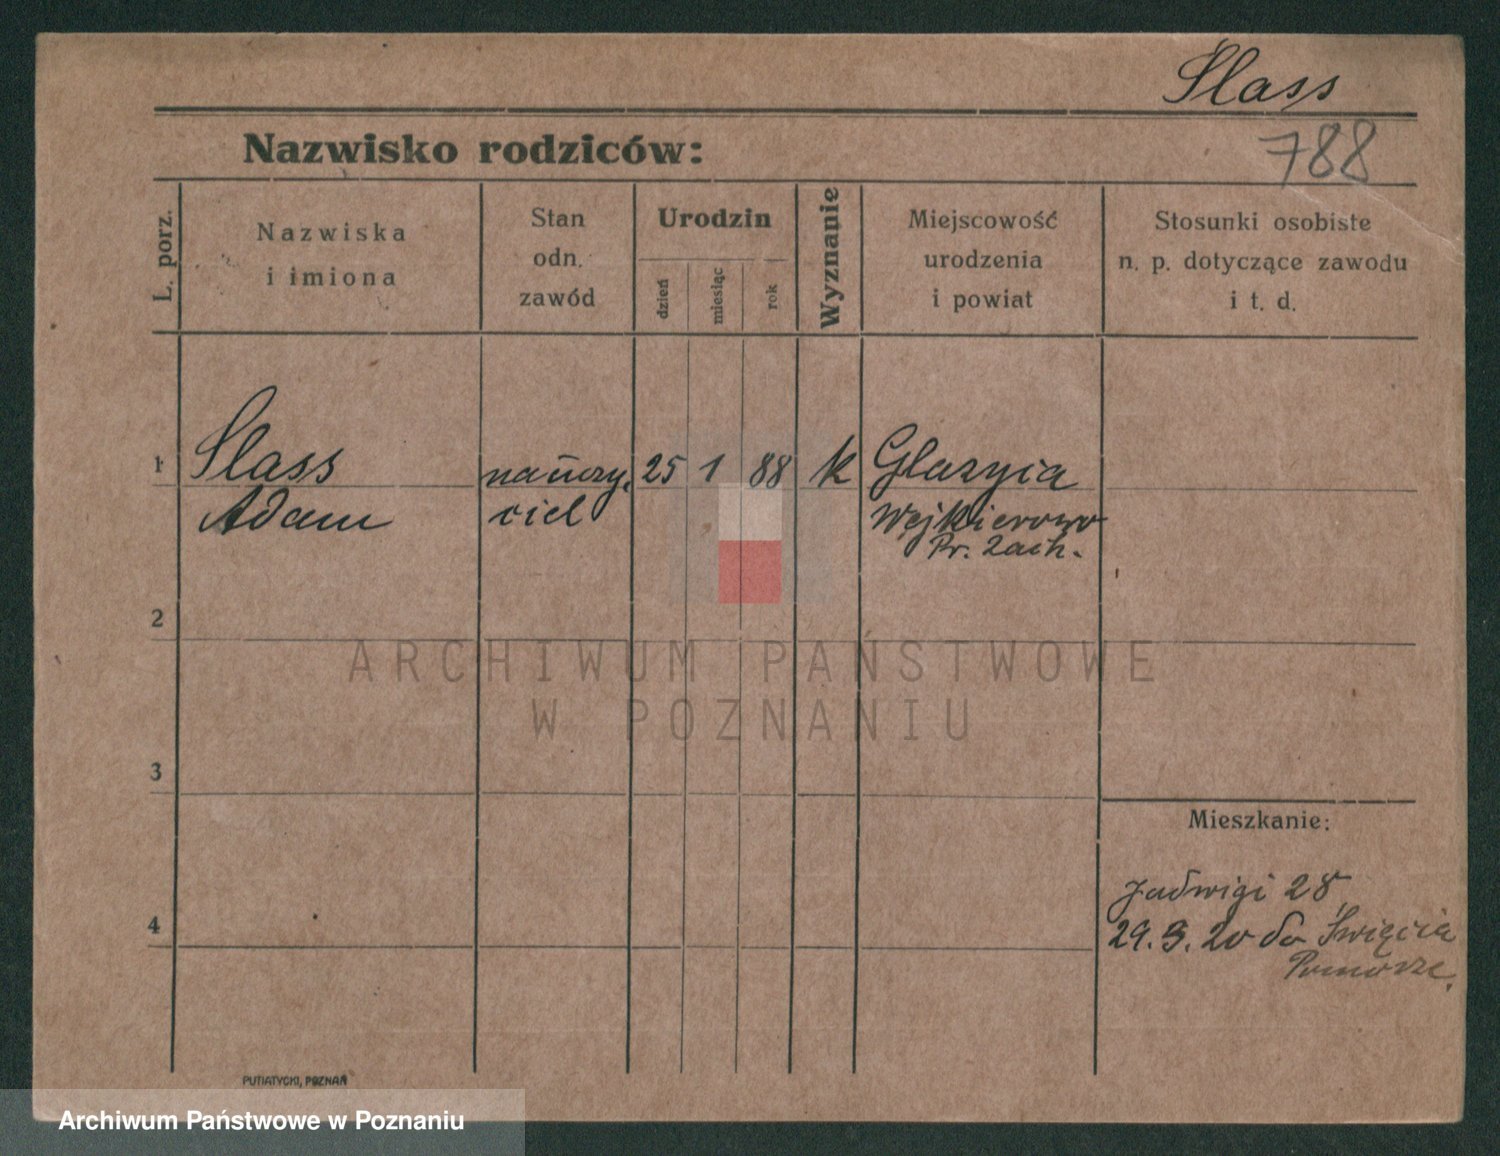 Slass
Nazwisko rodziców:
788
L. porz.
Nazwiska
i imiona
Stan
odn.
zawód
Urodzin
dzień
miesiąc
rok
Wyznanie
Miejscowość
urodzenia
i powiat
Stosunki osobiste
n. p. dotyczące zawodu
i t. d.
1
Slass
Adam
nauczy.
ciel
25 1 88
k
Glazyca
Wejkierowo
Pr. Zach.
2
3
4
ARCHIWUM PAŃSTWOWE
W POZNANIU
Mieszkanie:
Jadwigi 28
29.3.20 do Święcia
Pomorze.
PUTIATYCKI, POZNAŃ
Archiwum Państwowe w Poznaniu